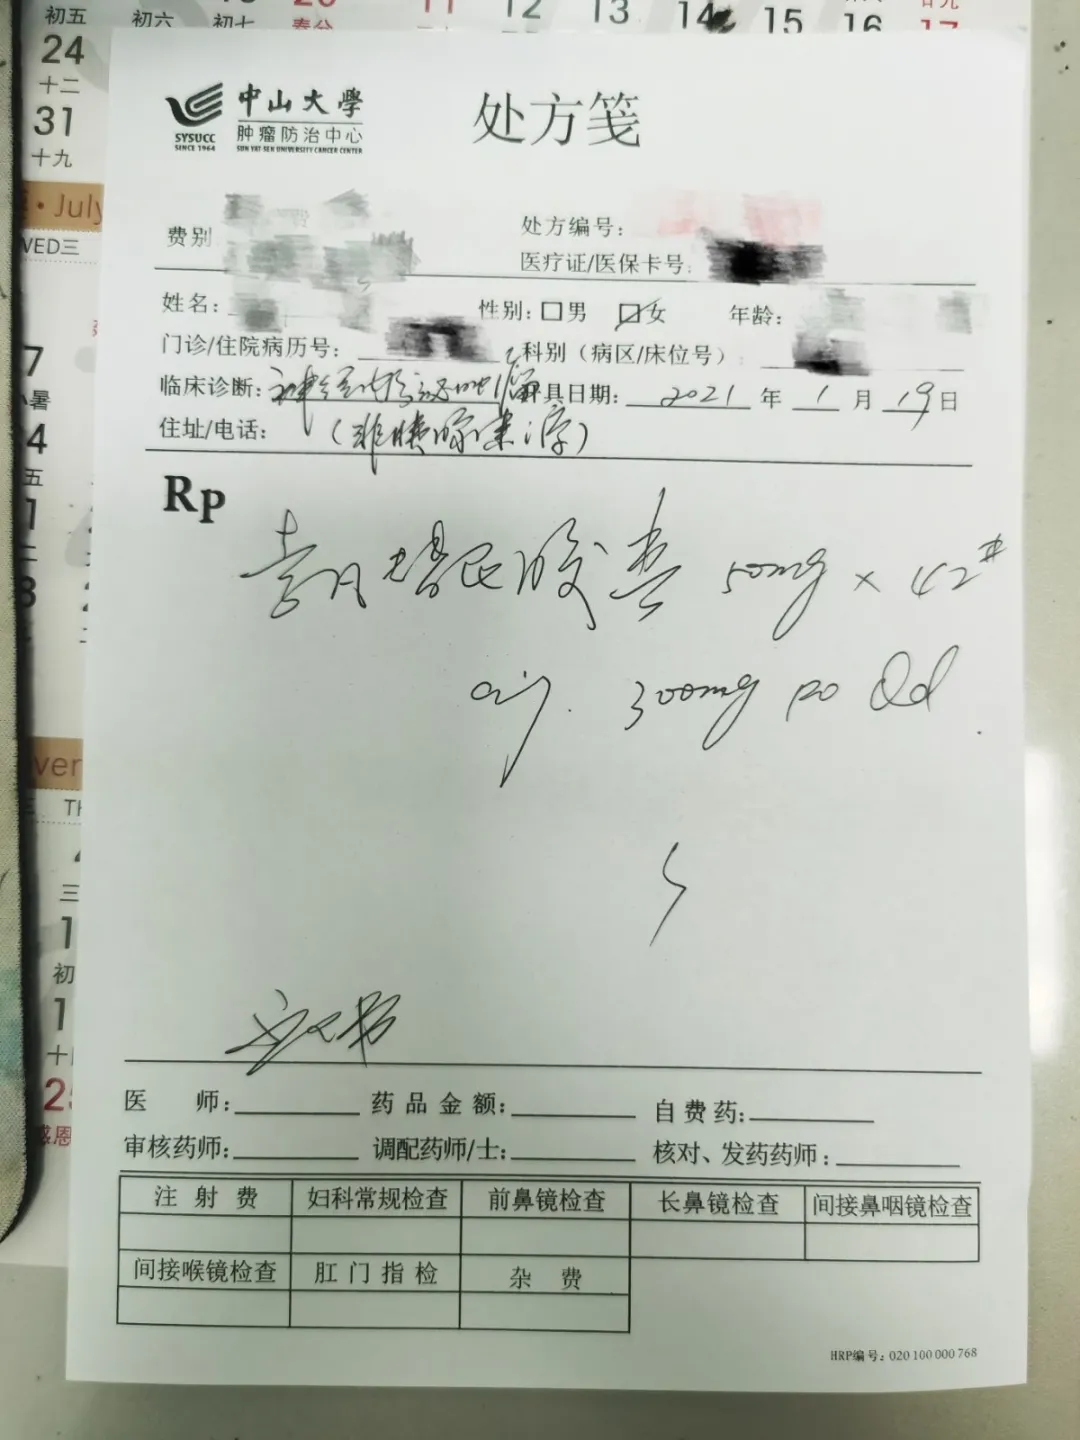 初五 初六 初七 春分
11 12 13 14 15 16 17
24
十二
31
十九
July
WED三
中山大學
处方笺
SYSUCC
SINCE 1964
肿瘤防治中心
SUN YAT-SEN UNIVERSITY CANCER CENTER
费别
处方编号:
医疗证/医保卡号:
姓名: 性别: 男 女 年龄:
门诊/住院病历号: 科别(病区/床位号):
临床诊断: 神经内分泌肿瘤 开具日期: 2021 年 1 月 19 日
住址/电话: (非胰腺来源)
Rp
索凡替尼胶囊 50mg × 42#
sig. 300mg po Qd
医 师:
药品金额:
自费药:
审核药师:
调配药师/士:
核对、发药药师:
注射费 妇科常规检查 前鼻镜检查 长鼻镜检查 间接鼻咽镜检查
间接喉镜检查 肛门指检 杂费
HRP编号: 020 100 000 768